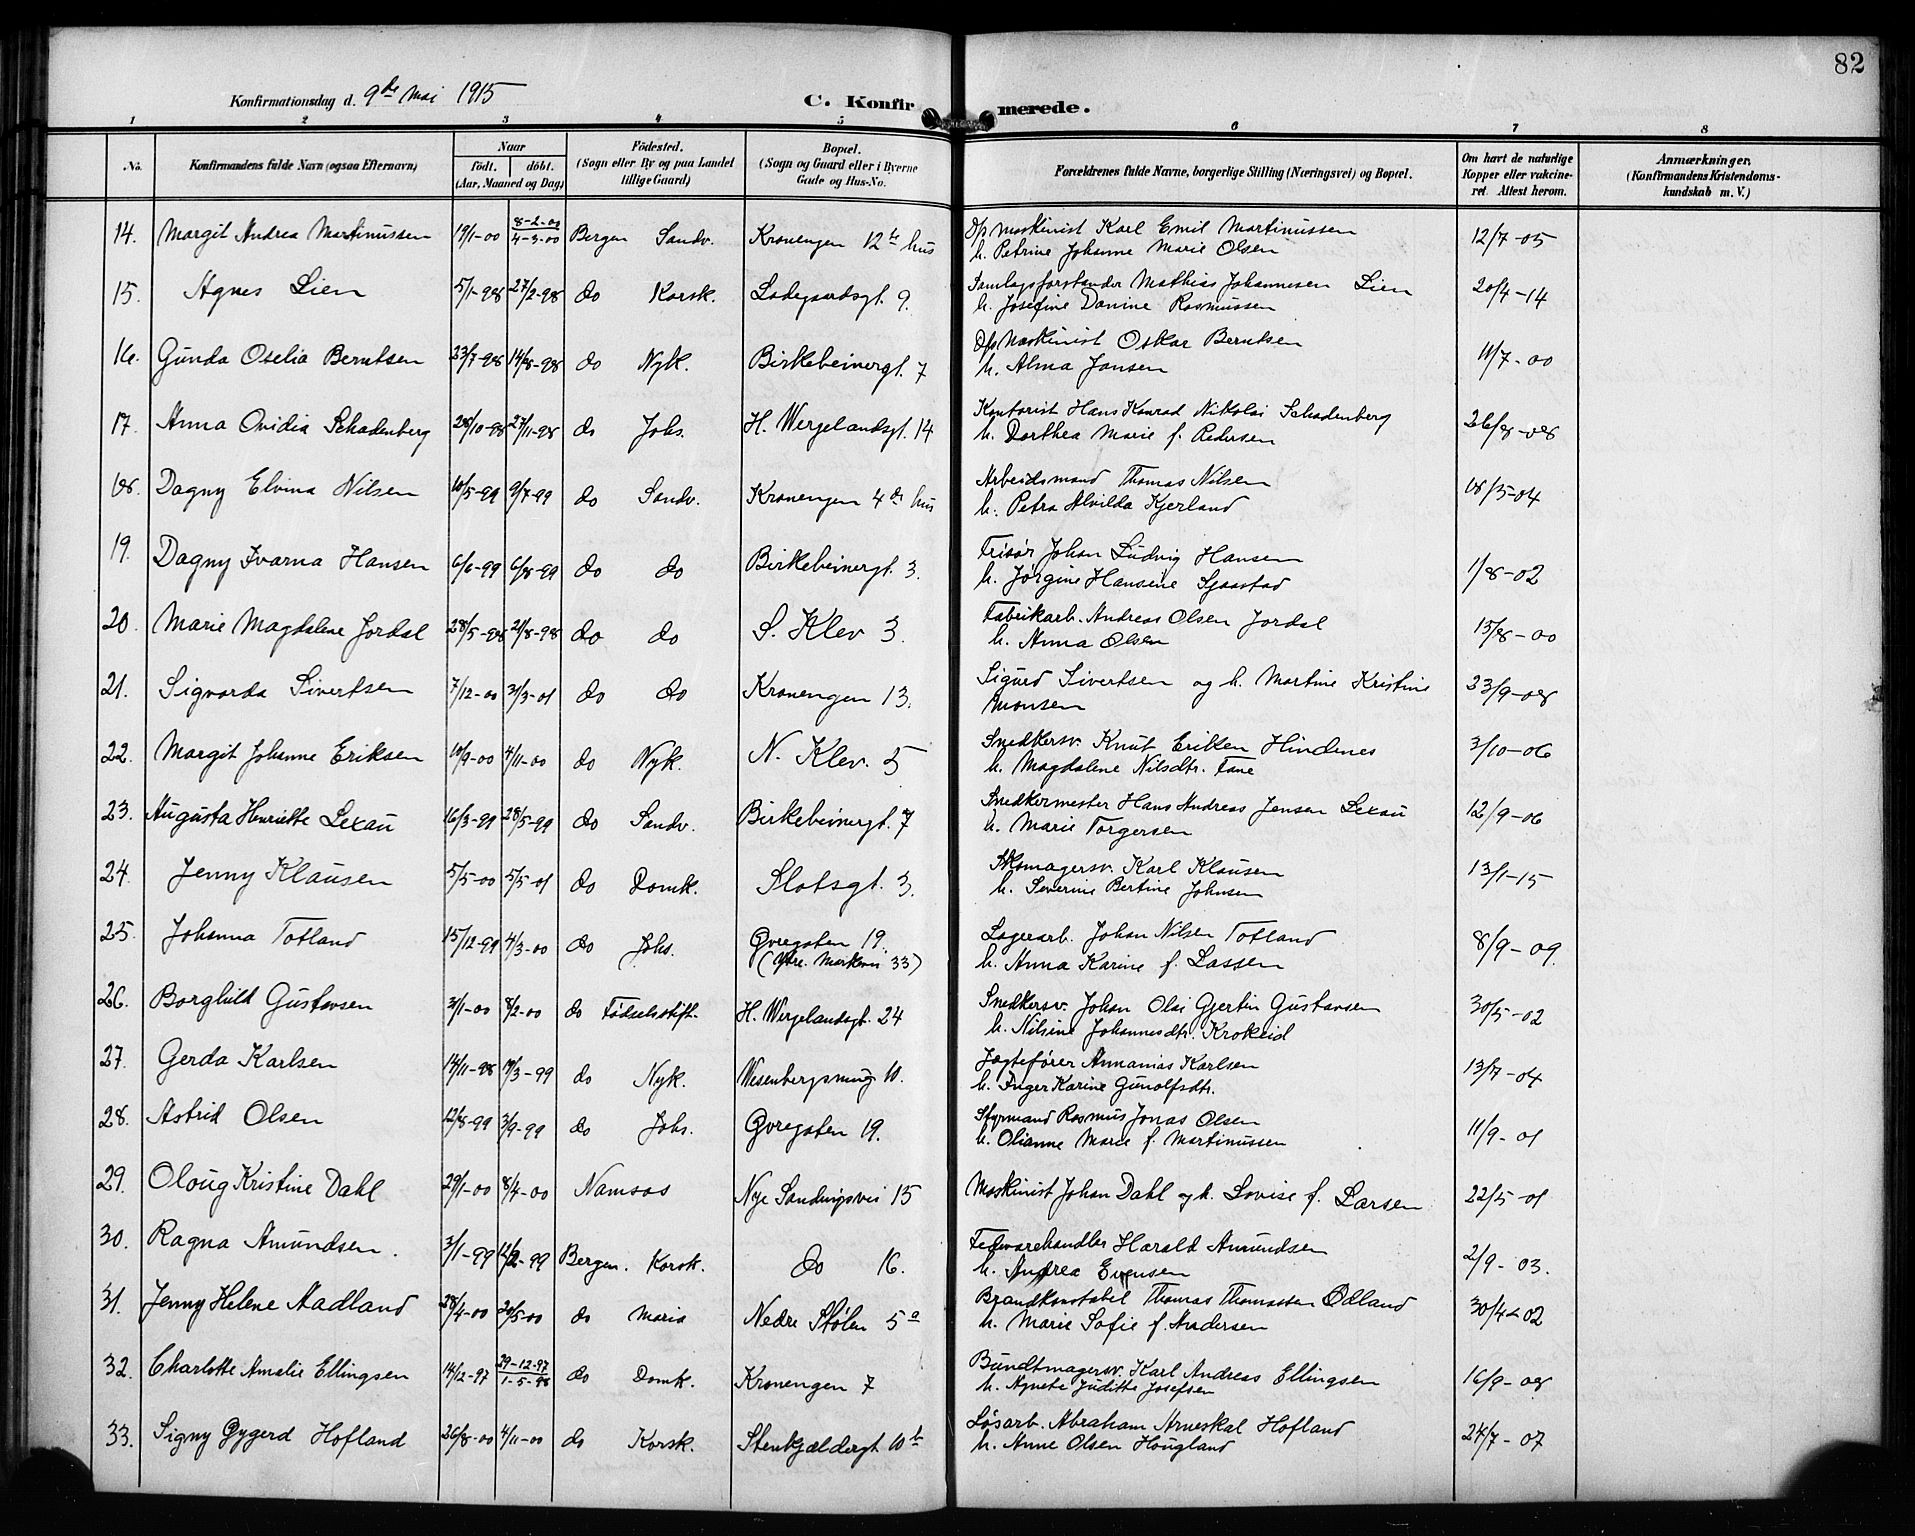 82
Konfirmationsdag d. 9de Mai 1915
C. Konfirmerede.
1 2 3 4 5 6 7 8
No.
Konfirmandens fulde Navn (ogsaa Efternavn)
Naar
födt. döbt.
(Aar, Maaned og Dag)
Födested.
(Sogn eller By og paa Landet
tillige Gaard)
Bopæl.
(Sogn og Gaard eller i Byerne
Gade og Hus-No.
Forældrenes fulde Navne, borgerlige Stilling (Næringsvei) og Bopæl.
Om havt de naturlige
Kopper eller vakcine-
ret. Attest herom.
Anmærkninger.
(Konfirmandens Kristendoms-
kundskab m. V.)
14. Margit Andrea Martinussen 19/1-00 8-2-00 / 4-3-00 Bergen Sandv. Kronengen 12te hus D/p Maskinist Karl Emil Martinussen 12/7-05
h. Petrine Johanne Marie Olsen
15. Agnes Lien 5/1-98 27/2-98 do Korsk. Ladegaardsgt. 9. Samlagsforstander Mathias Johannesen Lien 20/4-14
h. Josefine Danine Rasmussen
16. Gunda Oselia Berntsen 23/7-98 14/8-98 do Nyk. Birkebeinergt. 7 D/p Maskinist Oskar Berntsen 11/7-00
h. Alma Jansen
17. Anna Ovidia Schadenberg 28/10-98 27/11-98 do Johs. H. Wergelandsgt. 14 Kontorist Hans Konrad Nikolai Schadenberg 26/8-08
h. Dorthea Marie f. Pedersen
18. Dagny Elvina Nilsen 10/5-99 9/7-99 do Sandv. Kronengen 4de hus Arbeidsmand Thomas Nilsen 18/5-04
h. Petra Alvilda Kjerland
19. Dagny Ivarna Hansen 6/6-99 6/8-99 do do Birkebeinergt. 3. Frisør Johan Ludvig Hansen 1/8-02
h. Jørgine Hansine Sjaastad
20. Marie Magdalene Jordal 28/5-98 21/8-98 do do S. Klev 3. Fabrikarb. Andreas Olsen Jordal 15/8-00
h. Anna Olsen
21. Sigvarda Sivertsen 7/12-00 31/3-01 do do Kronengen 13. Sigurd Sivertsen og h. Martine Kristine 23/9-08
Monsen
22. Margit Johanne Eriksen 10/9-00 4/11-00 do Nyk. N. Klev. 5 Snedkersv. Knut Eriksen Hindenes 3/10-06
h. Magdalene Nilsdtr. Fane
23. Augusta Henriette Lexau 16/3-99 28/5-99 do Sandv. Birkebeinergt. 7 Snedkermester Hans Andreas Jensen Lexau 12/9-06
h. Marie Torgersen
24. Jenny Klausen 5/5-00 5/5-01 do Domk. Slotsgt. 3. Skomagersv. Karl Klausen 13/1-15
h. Severine Bertine Johnsen
25. Johanna Totland 15/12-99 4/3-00 do Johs. Øvregaten 19. Lagerarb. Johan Nilsen Totland 8/9-09.
(Ytre. Markevei 33) h. Anna Karine f. Lassen
26. Borghild Gustavsen 31/1-00 8/2-00 do Fødselsstift. H. Wergelandsgt. 24 Snedkersv. Johan Olai Gjertin Gustavsen 30/5-02
h. Nilsine Johannesdtr. Krokeid
27. Gerda Karlsen 14/11-98 19/3-99 do Nyk. Wesenbergsmug 10. Jagtefører Annanias Karlsen 13/7-04
h. Inger Karine Gunolfsdtr.
28. Astrid Olsen 12/8-99 3/9-99 do Johs. Øvregaten 19. Styrmand Rasmus Jonas Olsen 11/9-01
h. Olianne Marie f. Martinussen
29. Oloug Kristine Dahl 29/1-00 8/4-00 Namsos Nye Sandvigsvei 15 Maskinist Johan Dahl og h. Lovise f. Larsen 22/5-01
30. Ragna Amundsen. 3/1-99 12/2-99 Bergen. Korsk. do 16. Fedevarehandler Harald Amundsen 2/9-03.
h. Andrea Evensen
31. Jenny Helene Aadland 28/4-00 20/5-00 do Maria Nedre Stølen 5a Brandkonstabel Thomas Thomassen Ødland 30/4-02
h. Marie Sofie f. Andersen
32. Charlotte Amalie Ellingsen 14/12-97 29-12-97 / 1-5-98 do Domk. Kronengen 7 Bundtmagersv. Karl Andreas Ellingsen 16/9-08
h. Agnete Juditte Josefsen
33. Signy Gygerd Hofland 26/8-00 4/11-00 do Korsk. Stenkjeldergt 10b Løsarb. Abraham Arneskal Hofland 24/7-07
h. Anne Olsen Hougland